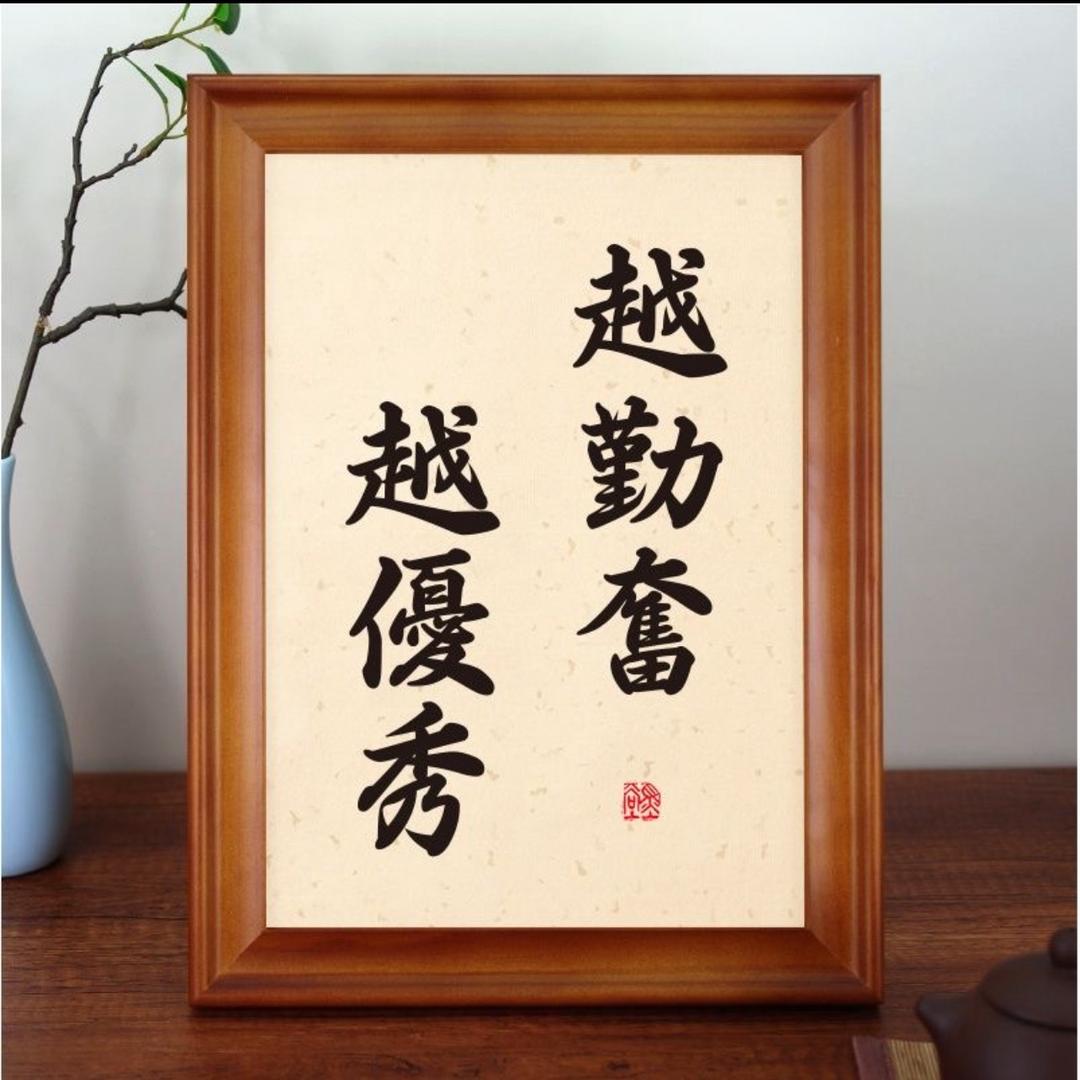 越勤奮
越優秀